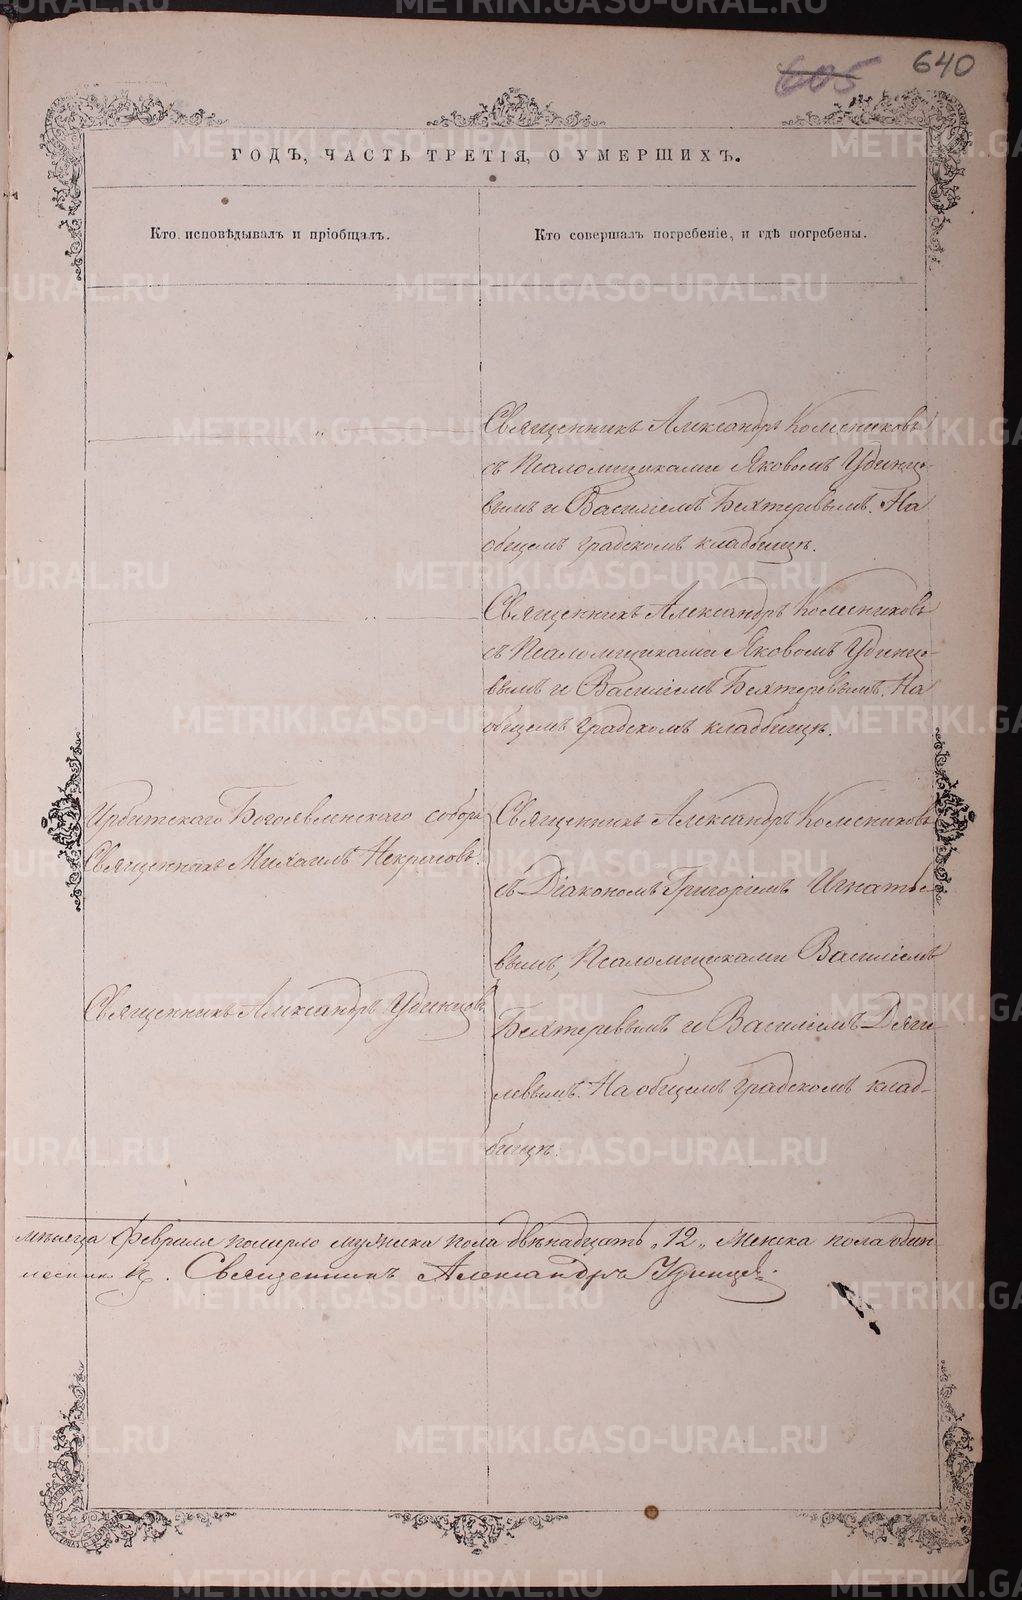 605 640
ГОДЪ, ЧАСТЬ ТРЕТІЯ, О УМЕРШИХЪ.
Кто исповѣдывалъ и пріобщалъ.
Кто совершалъ погребеніе, и гдѣ погребены.
Священникъ Александръ Колесниковъ
съ Псаломщиками Яковомъ Удинцо-
вымъ и Василіемъ Бехтеревымъ. На
общемъ градскомъ кладбищѣ.
Священникъ Александръ Колесниковъ
съ Псаломщиками Яковомъ Удинцо-
вымъ и Василіемъ Бехтеревымъ. На
общемъ градскомъ кладбищѣ.
Ирбитскаго Богоявленскаго собора
Священникъ Михаилъ Некрасовъ.
Священникъ Александръ Удинцовъ
Священникъ Александръ Колесниковъ
съ Діакономъ Григоріемъ Игнатье-
вымъ, Псаломщиками Василіемъ
Бехтеревымъ и Василіемъ Дяги-
левымъ. На общемъ градскомъ клад-
бищѣ.
мѣсяца Февраля померло мужеска пола двѣнадцать „12„ Женска пола один
Священникъ Александръ Удинцев
METRIKI.GASO-URAL.RU